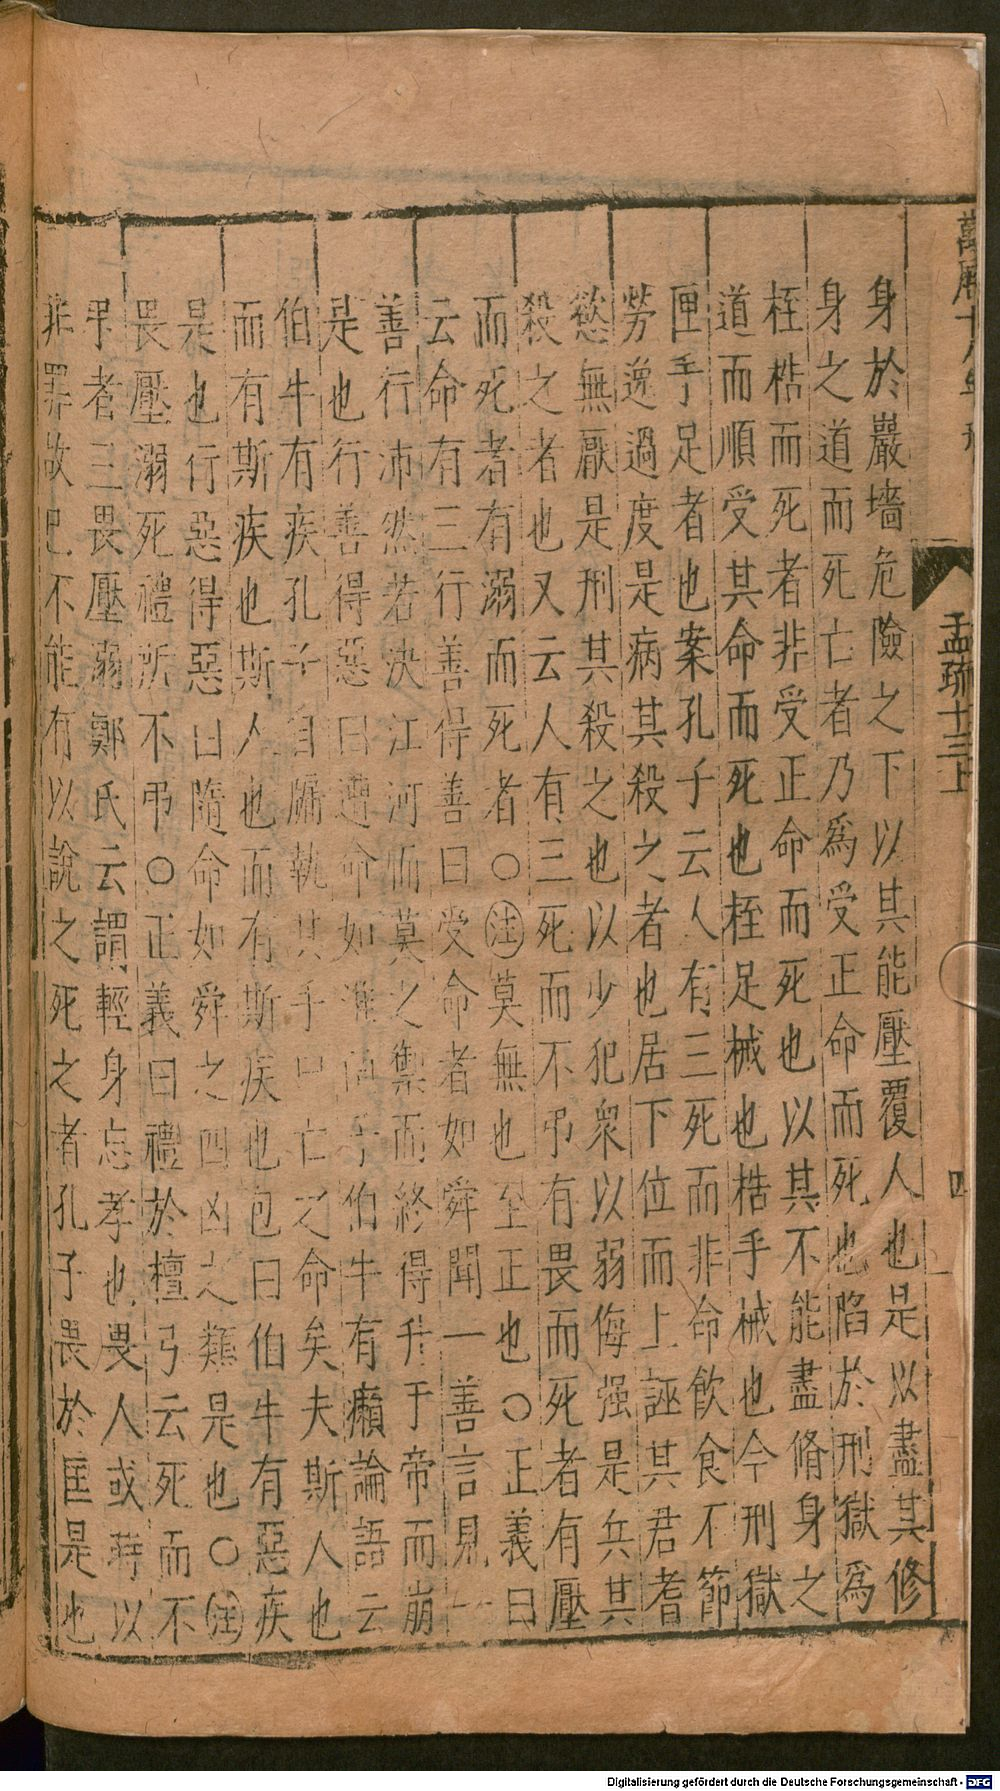 萬曆十八年刊
孟疏十三上
四
身於巖墻危險之下以其能壓覆人也是以盡其修
身之道而死亡者乃爲受正命而死也陷於刑獄爲
桎梏而死者非受正命而死也以其不能盡脩身之
道而順受其命而死也桎足械也梏手械也今刑獄
匣手足者也案孔子云人有三死而非命飲食不節
勞逸過度是病其殺之者也居下位而上誣其君耆
慾無厭是刑其殺之也以少犯衆以弱侮强是兵其
殺之者也又云人有三死而不弔有畏而死者有壓
而死者有溺而死者○注莫無也至正也○正義曰
云命有三行善得善曰受命者如舜聞一善言見一
善行沛然若決江河而莫之禦而終得升于帝而崩
是也行善得惡曰遭命如伯牛有癩論語云
伯牛有疾孔子自牖執其手曰亡之命矣夫斯人也
而有斯疾也斯人也而有斯疾也包曰伯牛有惡疾
是也行惡得惡曰隨命如舜之四凶之類是也○注
畏壓溺死禮所不弔○正義曰禮於檀弓云死而不
弔者三畏壓溺鄭氏云謂輕身忘孝也畏人或時以
非罪攻己不能有以說之死之者孔子畏於匡是也
Digitalisierung gefördert durch die Deutsche Forschungsgemeinschaft - DFG